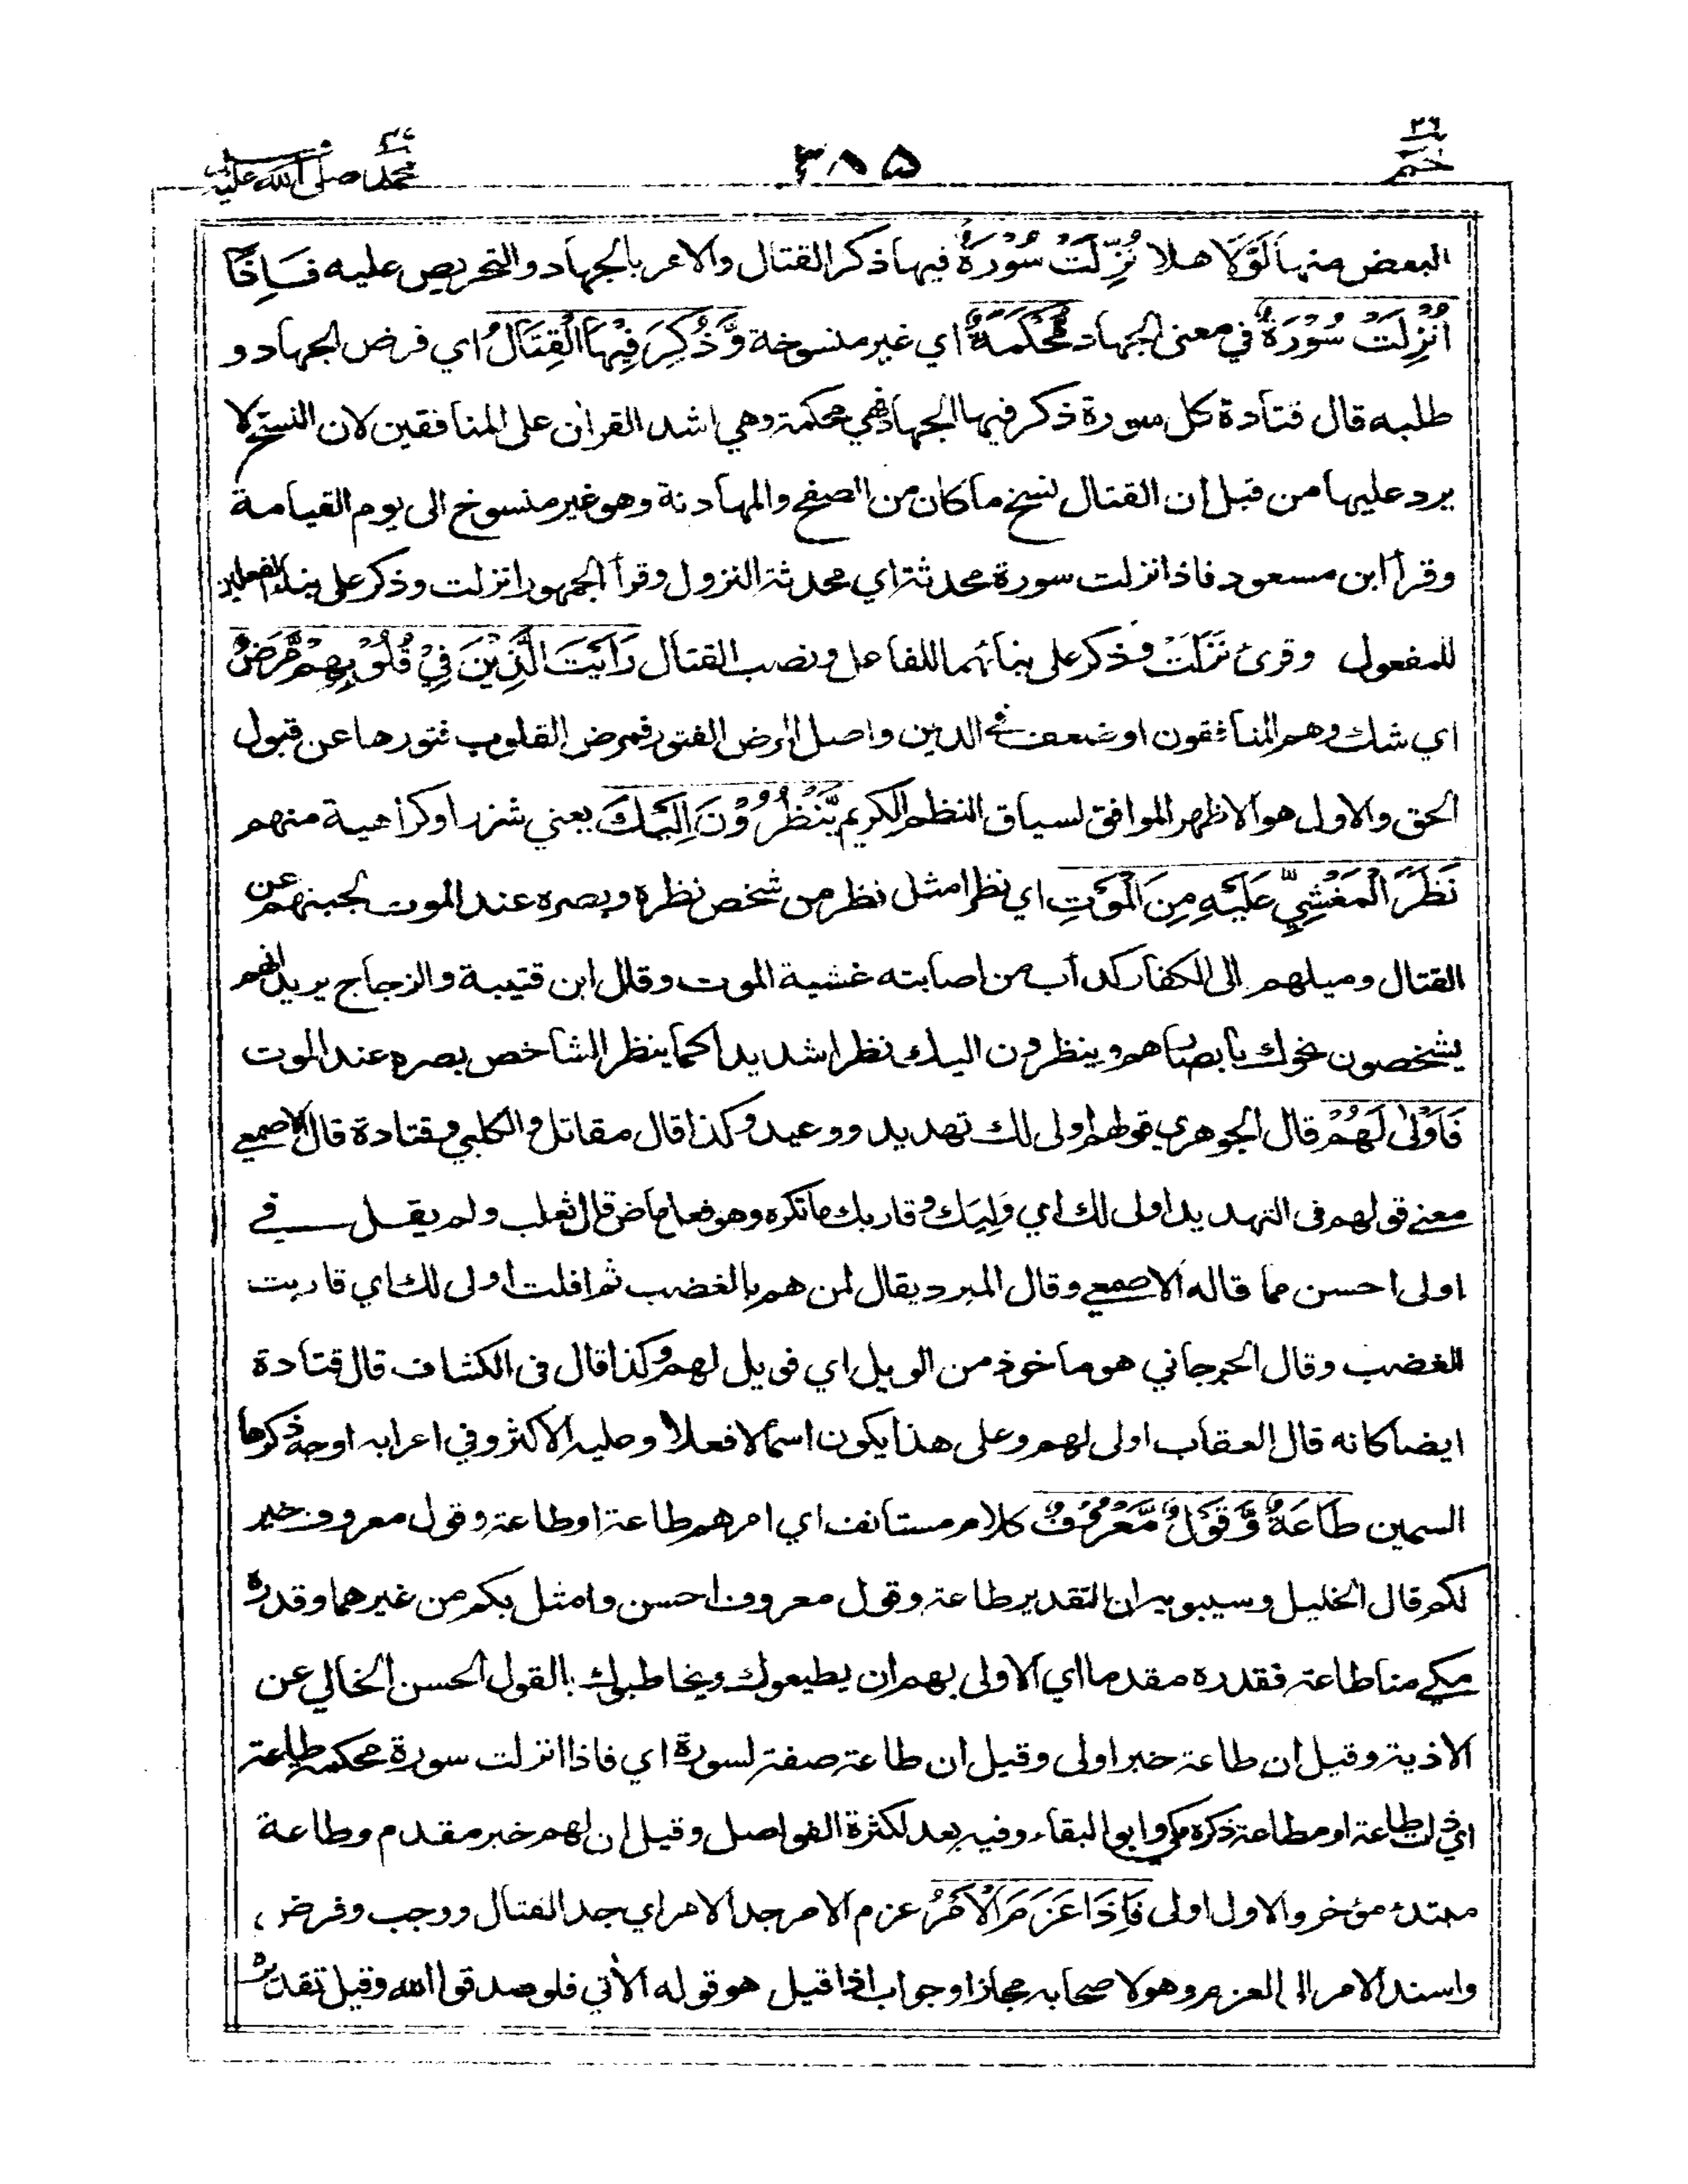 ٢٦
حٰم
٣٨٥
محمد صلى الله عليه
البعض منها لَوْلَا هلا نُزِّلَتْ سُوْرَةٌ فيها ذكر القتال والامر بالجهاد والتحريص عليه فَاِذَا
اُنْزِلَتْ سُوْرَةٌ في معنى الجهاد مُّحْكَمَةٌ اي غير منسوخة وَّذُكِرَ فِيْهَا الْقِتَالُ اي فرض الجهاد و
طلبه قال قتادة كل سورة ذكر فيها الجهاد فهي محكمة وهي اشد القرآن على المنافقين لان النسخ لا
يرد عليها من قبل ان القتال نسخ ما كان من الصفح والمهادنة وهو غير منسوخ الى يوم القيامة
وقرأ ابن مسعود فاذا نزلت سورة محدثة اي محدثة النزول وقرأ الجمهور انزلت وذكر على بناء الفعلين
للمفعول وقرئ نَزَلَتْ وذكر على بنائهما للفاعل ونصب القتال رَاَيْتَ الَّذِيْنَ فِيْ قُلُوْبِهِمْ مَّرَضٌ
اي شك وهم المنافقون او ضعف في الدين واصل المرض الفتور فمرض القلوب فتورها عن قبول
الحق والاول هو الاظهر الموافق لسياق النظم الكريم يَّنْظُرُوْنَ اِلَيْكَ يعني شزرا وكراهية منهم
نَظَرَ الْمَغْشِيِّ عَلَيْهِ مِنَ الْمَوْتِ اي نظرا مثل نظر من شخص نظره وبصره عند الموت لجبنهم عن
القتال وميلهم الى الكفار كدأب من اصابته غشية الموت وقال ابن قتيبة والزجاج يريد انهم
يشخصون نحوك بابصارهم وينظرون اليك نظرا شديدا كما ينظر الشاخص بصره عند الموت
فَاَوْلٰى لَهُمْ قال الجوهري قولهم اولى لك تهديد ووعيد وكذا قال مقاتل والكلبي وقتادة قال الاصمعي
معنى قولهم في التهديد اولى لك اي وَلِيَك وقاربك ما تكره وهو فعل ماض قال ثعلب ولم يقل في
اولى احسن مما قاله الاصمعي وقال المبرد يقال لمن هم بالغضب ثم افلت اولى لك اي قاربت
الغضب وقال الجرجاني هو ماخوذ من الويل اي فويل لهم وكذا قال في الكشاف قال قتادة
ايضا كانه قال العقاب اولى لهم وعلى هذا يكون اسما لا فعلا وعليه الاكثر وفي اعرابه اوجه ذكرها
السمين طَاعَةٌ وَّقَوْلٌ مَّعْرُوْفٌ كلام مستأنف اي امرهم طاعة او طاعة وقول معروف خير
لكم قال الخليل وسيبويه ان التقدير طاعة وقول معروف احسن وامثل بكم من غيرهما وقدره
مكي منا طاعة فقدره مقدما اي الاولى بهم ان يطيعوك ويخاطبوك بالقول الحسن الخالي عن
الاذية وقيل ان طاعة خبر اولى وقيل ان طاعة صفة لسورة اي فاذا انزلت سورة محكمة طاعة
اي ذات طاعة او مطاعة ذكره مكي وابو البقاء وفيه بعد لكثرة الفواصل وقيل ان لهم خبر مقدم وطاعة
مبتدء مؤخر والاول اولى فَاِذَا عَزَمَ الْاَمْرُ عزم الامر جد الامر اي جد القتال ووجب وفرض
واسند الامر الى العزم وهو لاصحابه مجازا وجواب اذا قيل هو قوله الآتي فلو صدقوا الله وقيل تقديره